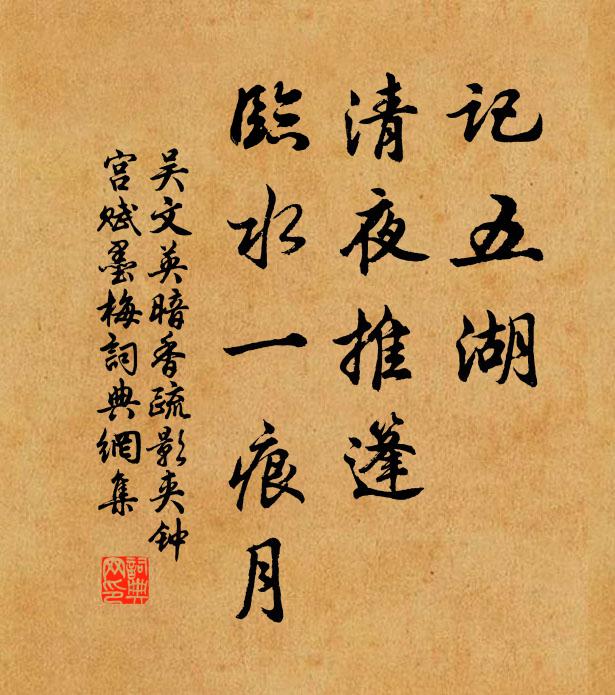 记五湖
清夜推篷
臨水一痕月
吴文英暗香疏影夹钟
宫赋墨梅詞典網集
詞典
网印